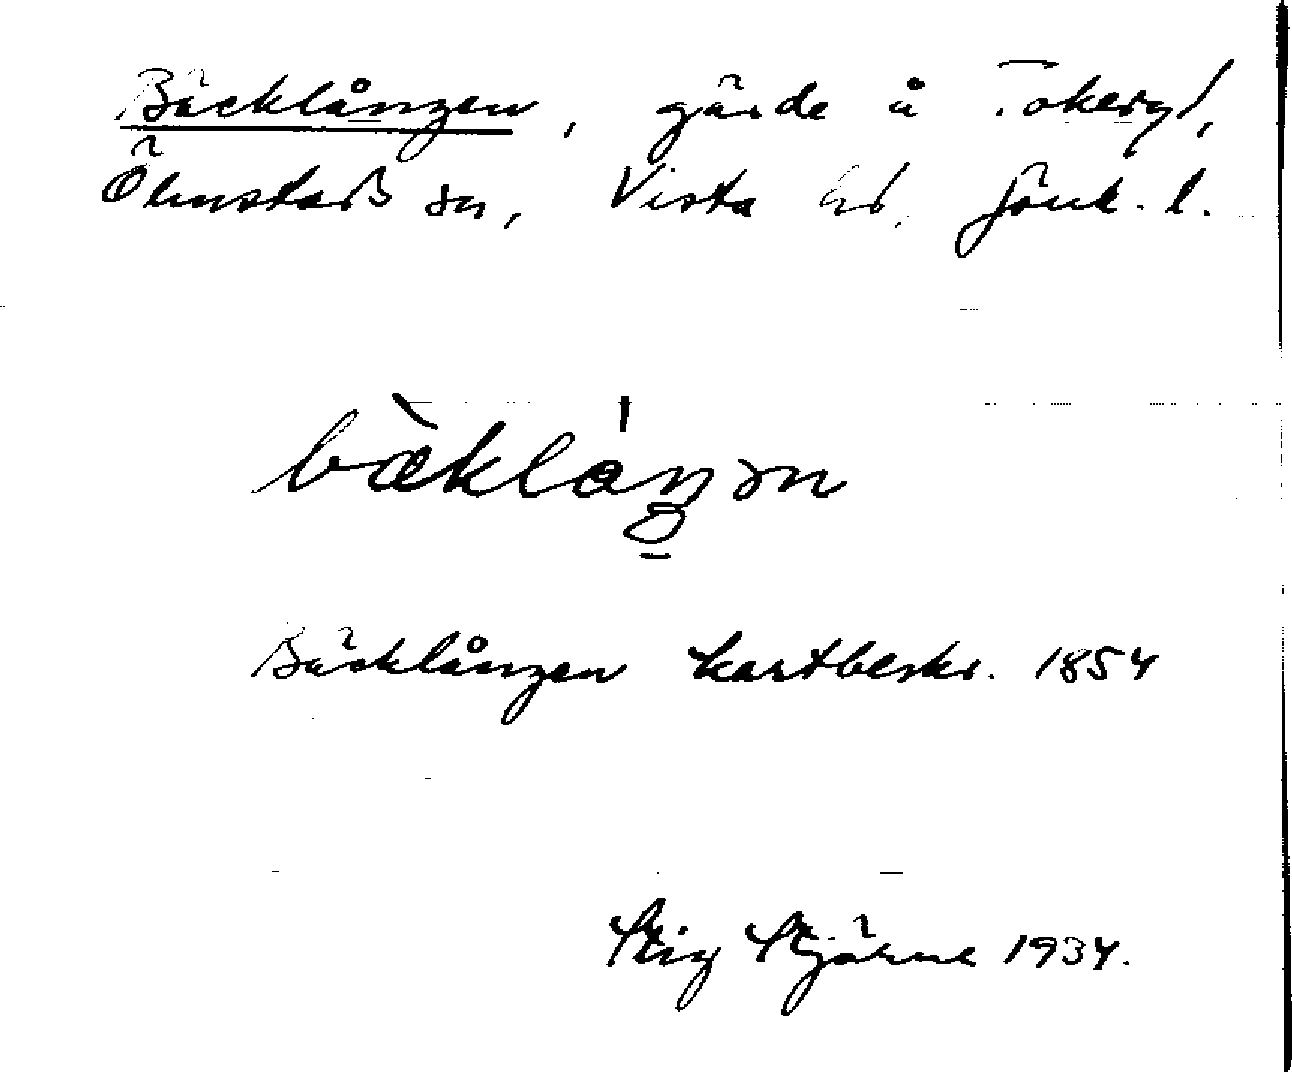 Bäcklången, gärde å Tokeryd,
Ölmstads sn, Vista hd. Jönk. l.
Bäcklången kartbeskr. 1854
Stig Stjärne 1934.